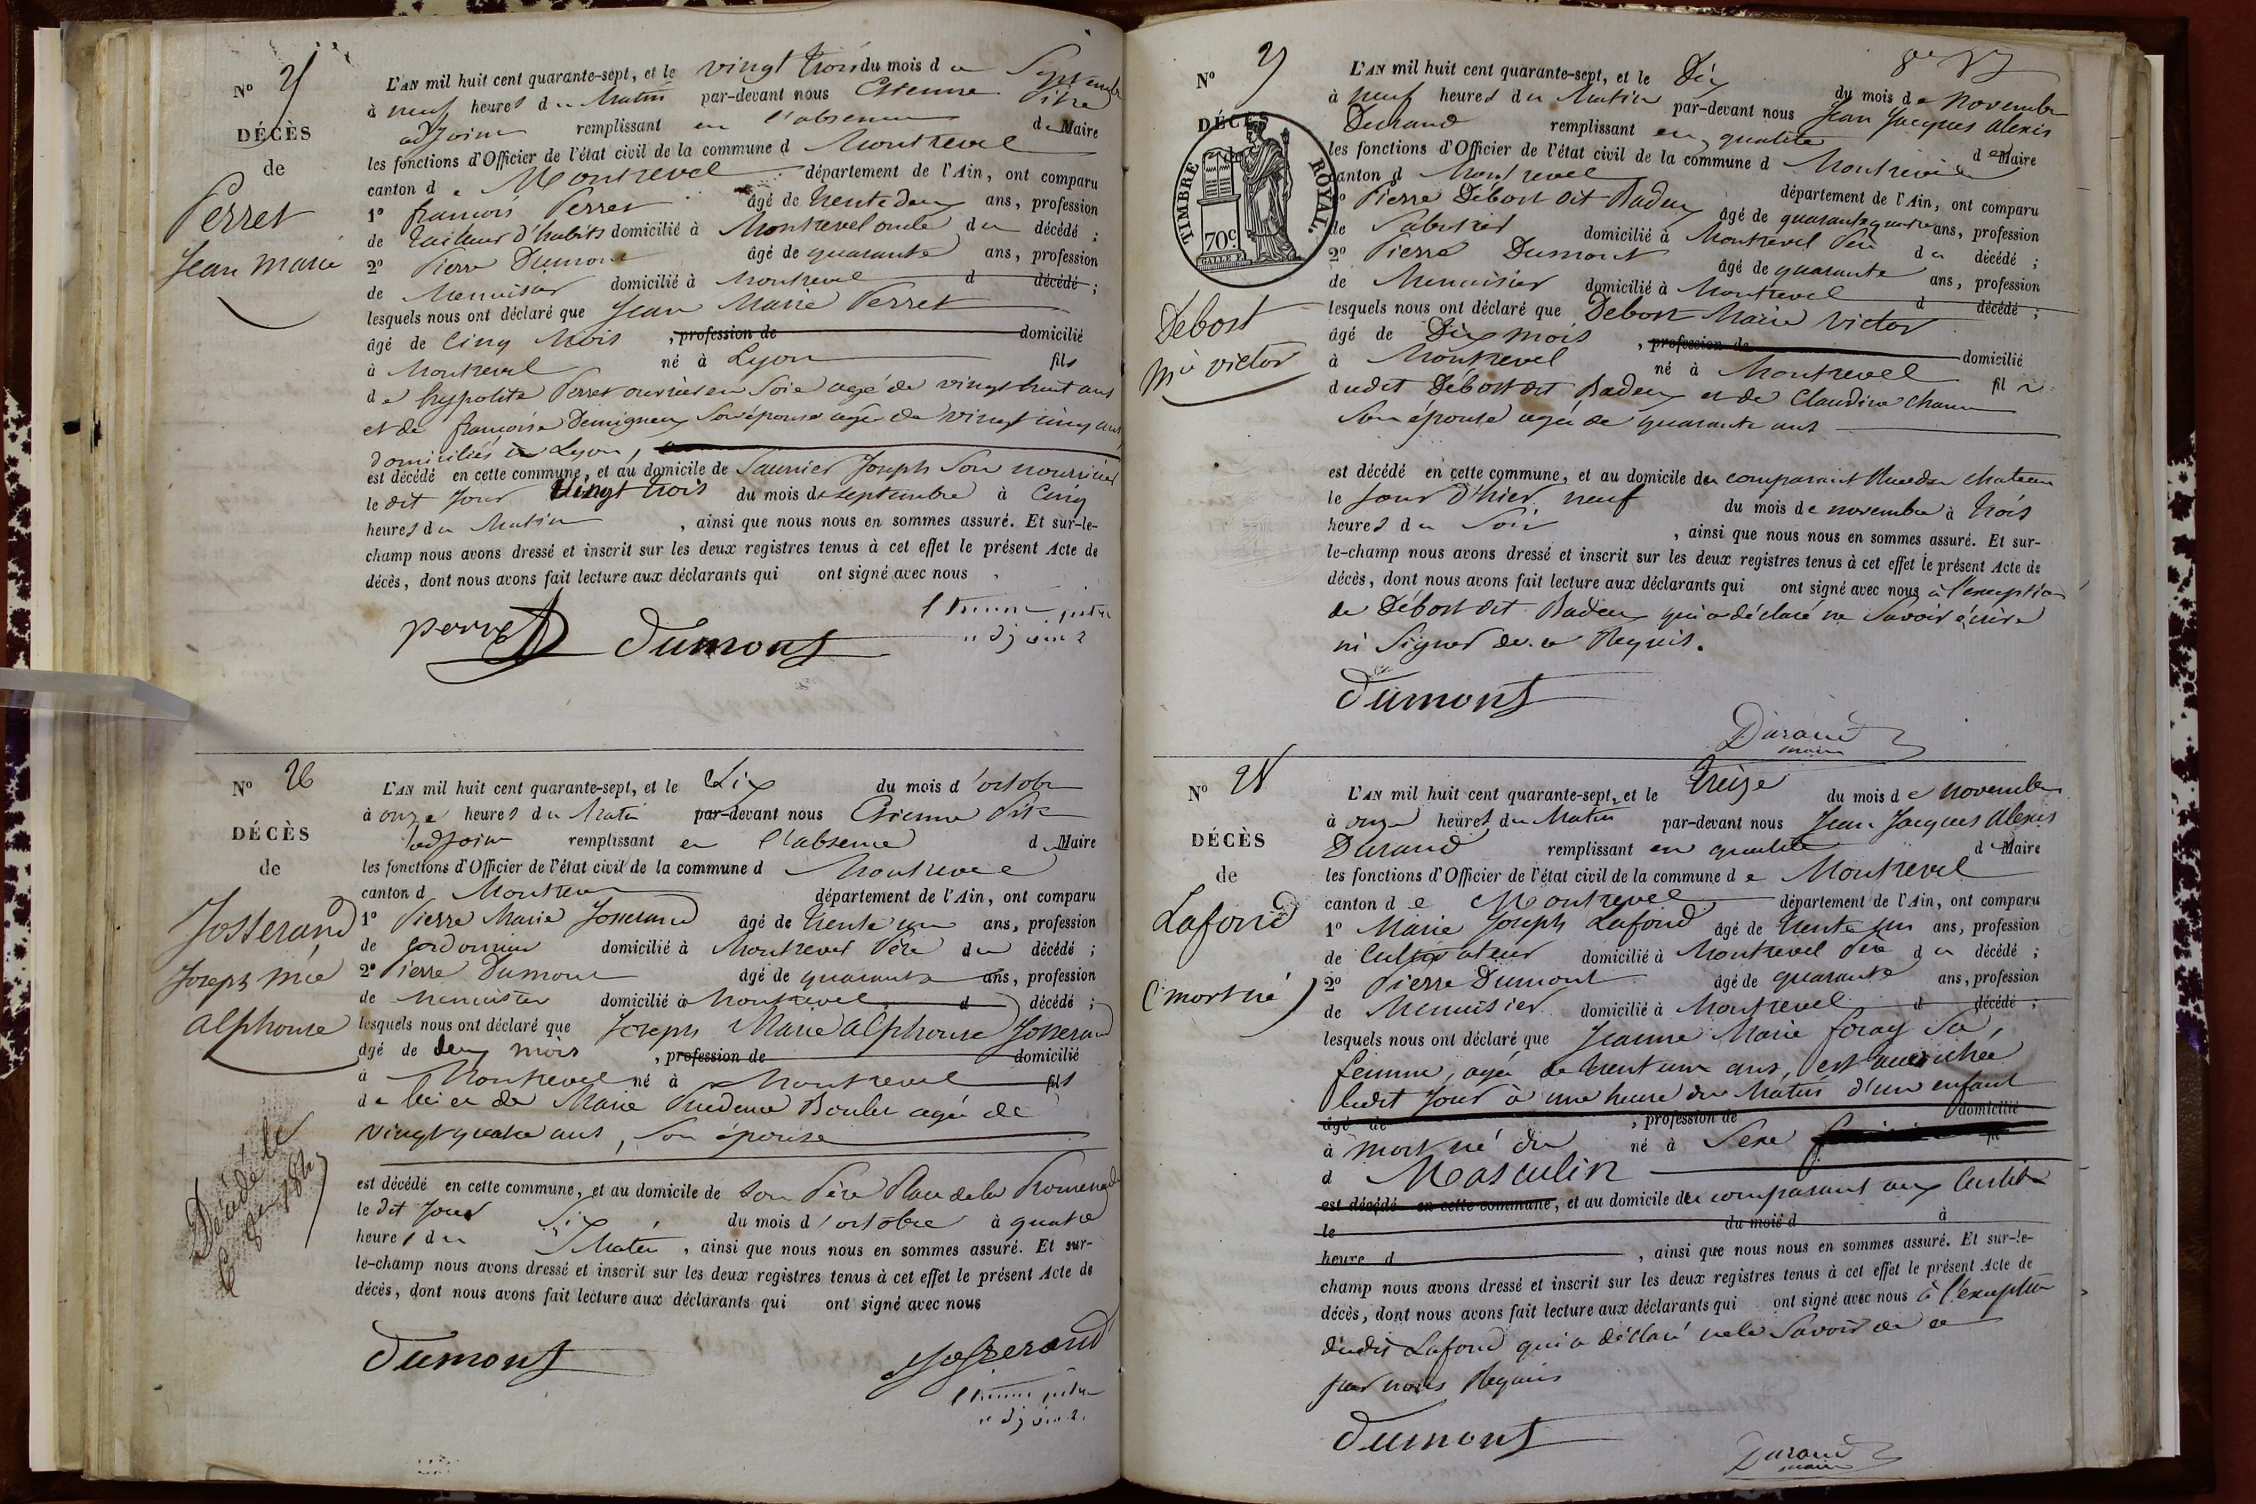 N° 25
DÉCÈS
de
Perret
Jean Marie
L'AN mil huit cent quarante-sept, et le vingt trois du mois de Septembre
à neuf heures du Matin par-devant nous Etienne Pitre
adjoint remplissant en l'absence du Maire
les fonctions d'Officier de l'état civil de la commune d Montrevel
canton de Montrevel département de l'Ain, ont comparu
1° françois Perret âgé de trente deux ans, profession
de tailleur d'habits domicilié à Montrevel oncle du décédé ;
2° Pierre Dumont âgé de quarante ans, profession
de Menuisier domicilié à Montrevel d décédé ;
lesquels nous ont déclaré que Jean Marie Perret
âgé de Cinq Mois , profession de domicilié
à Montrevel né à Lyon fils
de hyppolite Perret ouvrier en Soie agé de vingt huit ans
et de françoise Demigneux Son épouse agée de vingt cinq ans
domiciliés à Lyon,
est décédé en cette commune, et au domicile de Saunier Joseph Son nourricier
le dit Jour vingt trois du mois de septembre à Cinq
heures du Matin , ainsi que nous nous en sommes assuré. Et sur-le-
champ nous avons dressé et inscrit sur les deux registres tenus à cet effet le présent Acte de
décès, dont nous avons fait lecture aux déclarants qui ont signé avec nous
perret Dumont
N° 26
DÉCÈS
de
Josserand
Joseph Mie
alphonse
Décédé le
L'AN mil huit cent quarante-sept, et le Six du mois d'octobre
à onze heures du Matin par-devant nous Etienne Pitre
adjoint remplissant en l'absence du Maire
les fonctions d'Officier de l'état civil de la commune d Montrevel
canton d Montrevel département de l'Ain, ont comparu
1° Pierre Marie Josserand âgé de trente un ans, profession
de Cordonnier domicilié à Montrevel Père du décédé ;
2° Pierre Dumont âgé de quarante ans, profession
de Menuisier domicilié à Montrevel d décédé ;
lesquels nous ont déclaré que Joseph Marie alphonse Josserand
âgé de deux mois , profession de domicilié
à Montrevel né à Montrevel fils
de lui et de Marie Prudence Boulet agée de
vingt quatre ans, Son épouse
est décédé en cette commune, et au domicile de Son Père Place de la Promenade
le dit Jour Six du mois d'octobre à quatre
heures du Matin , ainsi que nous nous en sommes assuré. Et sur-
le-champ nous avons dressé et inscrit sur les deux registres tenus à cet effet le présent Acte de
décès, dont nous avons fait lecture aux déclarants qui ont signé avec nous
Dumont Josserand
N° 27
DÉCÈS
TIMBRE ROYAL.
70c.
Debost
Mie victor
L'AN mil huit cent quarante-sept, et le Dix du mois de Novembre
à neuf heures du Matin par-devant nous Jean Jacques Alexis
Durand remplissant en qualité de Maire
les fonctions d'Officier de l'état civil de la commune d Montrevel
canton d Montrevel département de l'Ain, ont comparu
1° Pierre Débost dit Badeux âgé de quarante quatre ans, profession
de Sabotier domicilié à Montrevel Père du décédé ;
2° Pierre Dumont âgé de quarante ans, profession
de Menuisier domicilié à Montrevel d décédé ;
lesquels nous ont déclaré que Debost Marie Victor
âgé de Dix mois , profession de domicilié
à Montrevel né à Montrevel fils
dudit Débost dit Badeux et de Claudine
Son épouse agée de quarante ans
est décédé en cette commune, et au domicile du comparant Rue du chateau
le Jour d'hier neuf du mois de novembre à trois
heures du Soir , ainsi que nous nous en sommes assuré. Et sur-
le-champ nous avons dressé et inscrit sur les deux registres tenus à cet effet le présent Acte de
décès, dont nous avons fait lecture aux déclarants qui ont signé avec nous à l'exception
de Débost dit Badeux qui a déclaré ne Savoir écrire
ni Signer de ce Requis.
Dumont
Durand
maire
N° 28
DÉCÈS
de
Lafond
(mort né)
L'AN mil huit cent quarante-sept, et le treize du mois de novembre
à onze heures du Matin par-devant nous Jean Jacques Alexis
Durand remplissant en qualité de Maire
les fonctions d'Officier de l'état civil de la commune de Montrevel
canton de Montrevel département de l'Ain, ont comparu
1° Marie Joseph Lafond âgé de trente un ans, profession
de Cultivateur domicilié à Montrevel Père du décédé ;
2° Pierre Dumont âgé de quarante ans, profession
de Menuisier domicilié à Montrevel d décédé ;
lesquels nous ont déclaré que Jeanne Marie foray Sa
femme, agée de trent un ans, est accouchée
ledit Jour à une heure du Matin d'un enfant
âgé de , profession de domicilié
à mort né du né à Sexe
d Masculin
est décédé en cette commune, et au domicile du comparant aux
le du mois d à
heure d , ainsi que nous nous en sommes assuré. Et sur-le-
champ nous avons dressé et inscrit sur les deux registres tenus à cet effet le présent Acte de
décès, dont nous avons fait lecture aux déclarants qui ont signé avec nous à l'exception
dudit Lafond qui a déclaré ne le Savoir de ce
par nous Requis
Dumont
Durand
maire